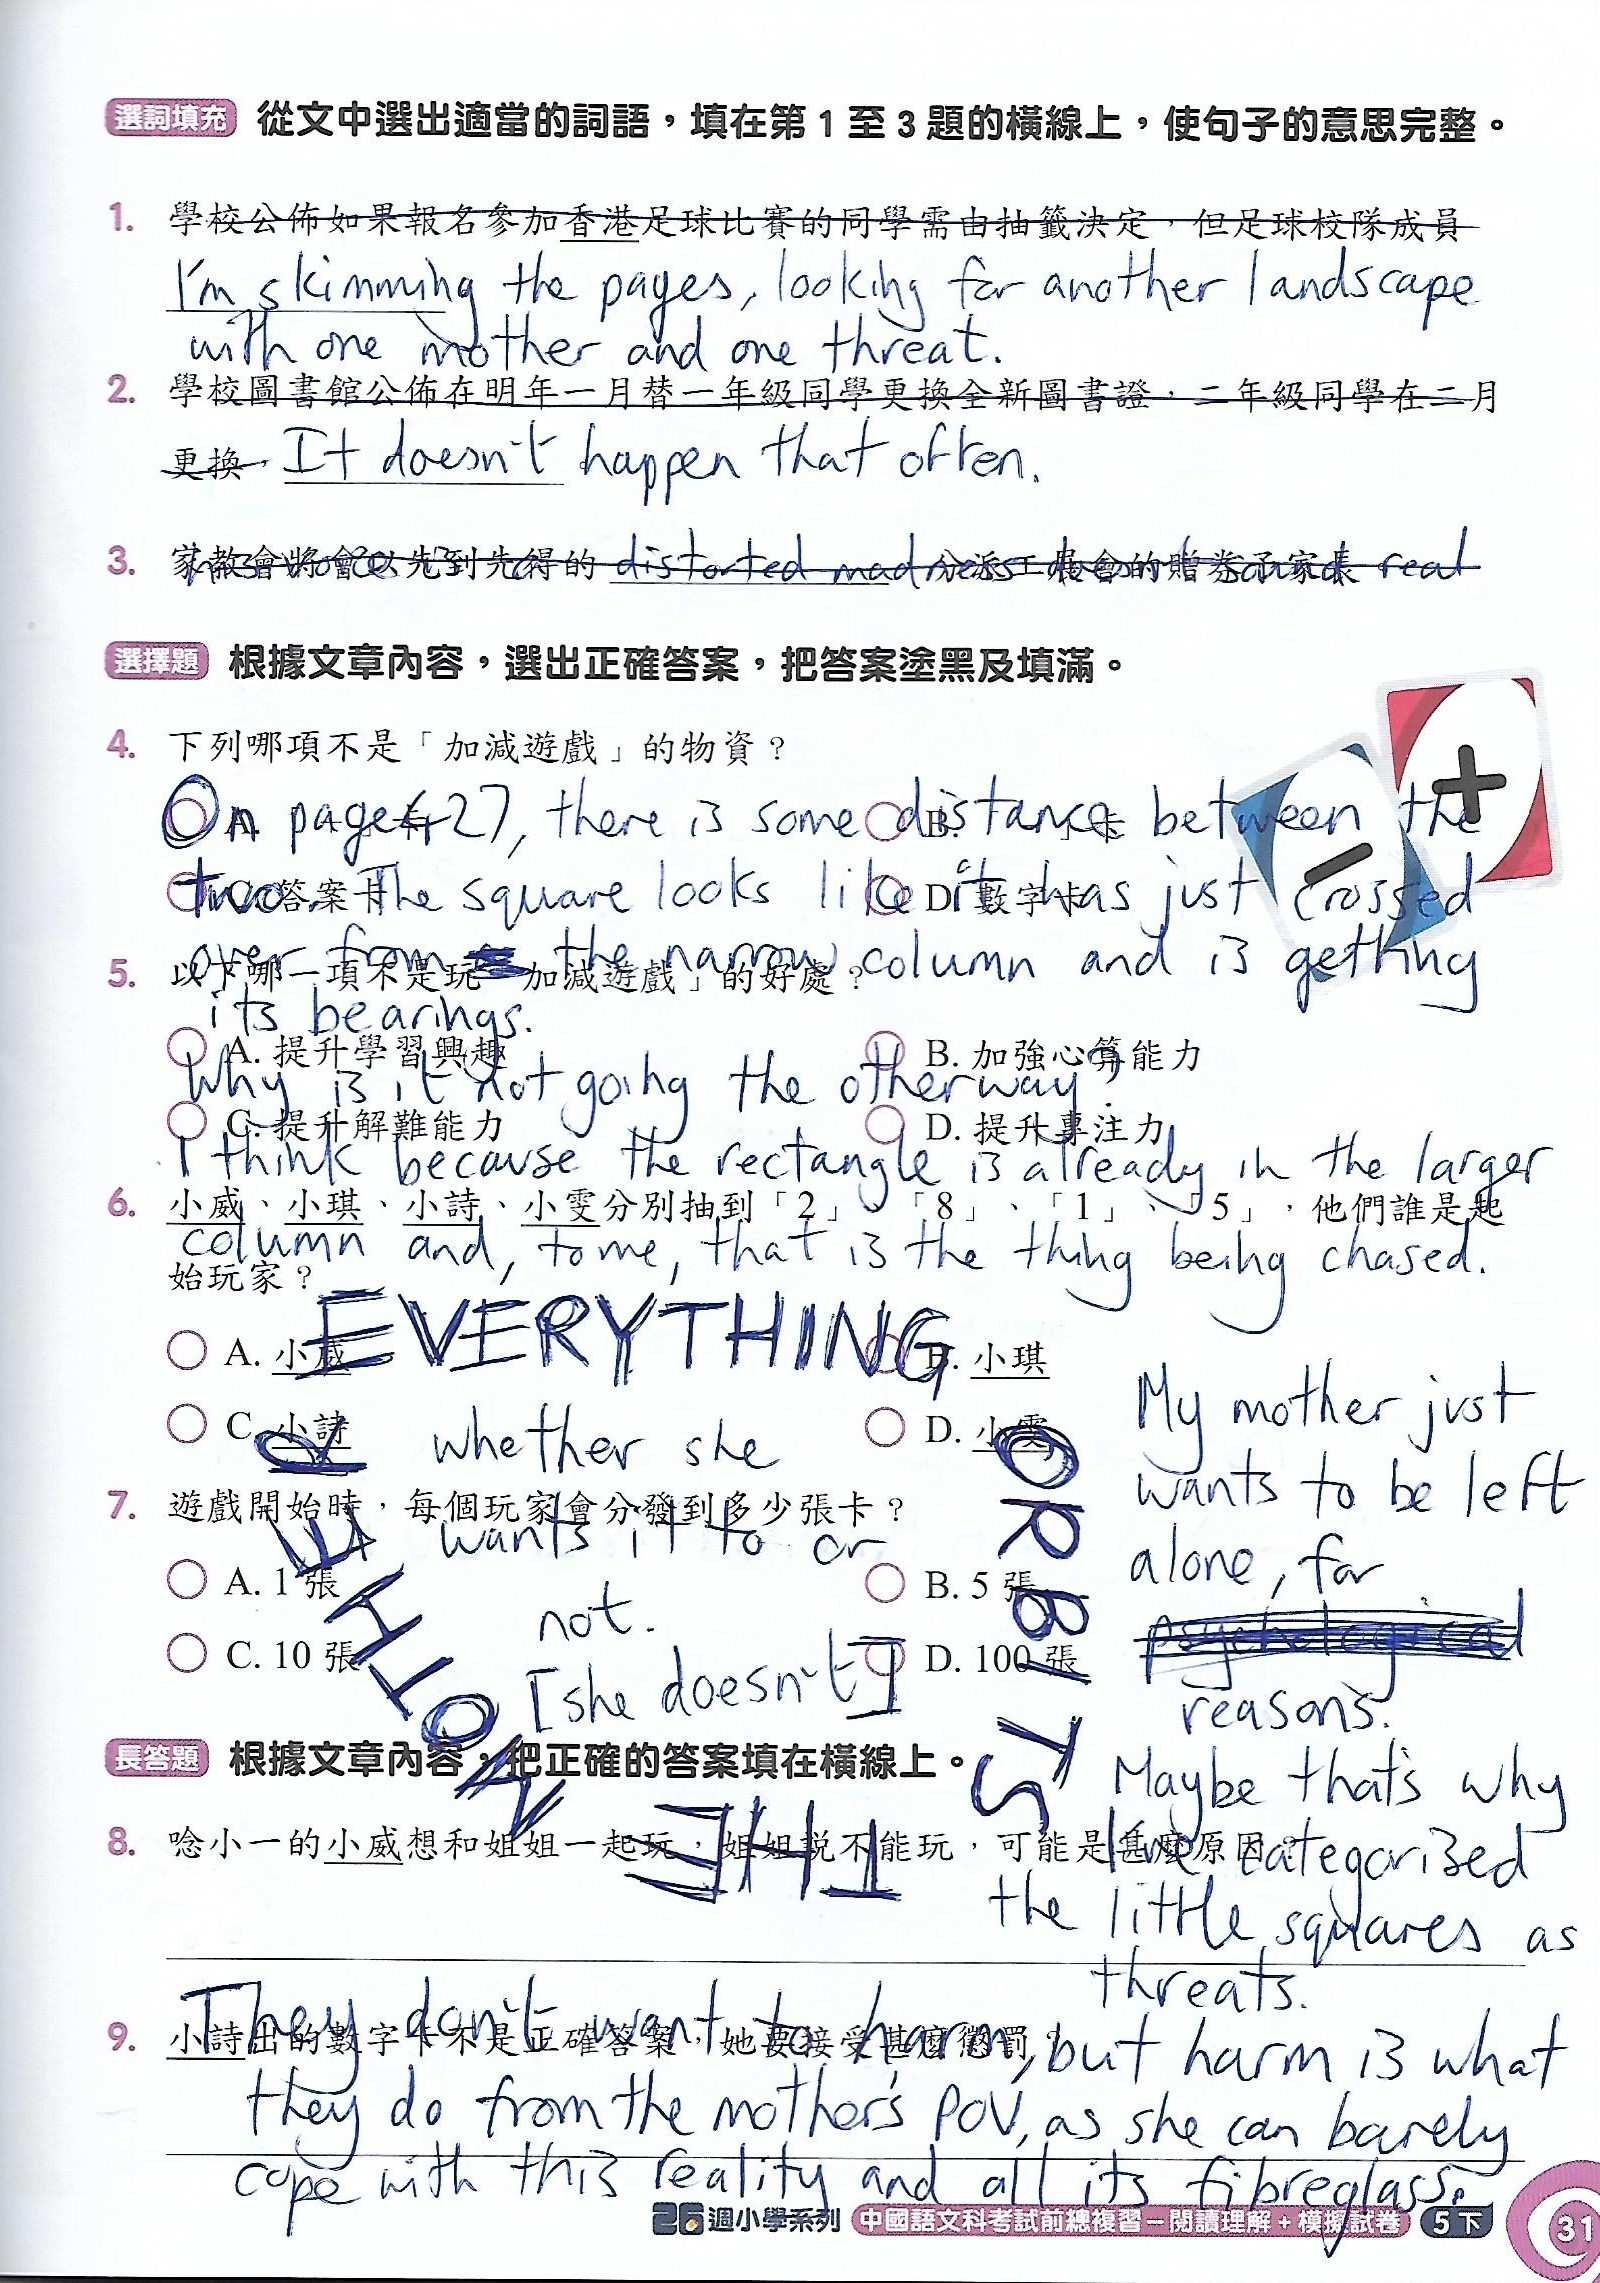 選詞填充 從文中選出適當的詞語，填在第 1 至 3 題的橫線上，使句子的意思完整。
1. 學校公佈如果報名參加香港足球比賽的同學需由抽籤決定，但足球校隊成員
I'm skimming the pages, looking for another landscape
with one mother and one threat.
2. 學校圖書館公佈在明年一月替一年級同學更換全新圖書證，二年級同學在二月
更換， It doesn't happen that often.
3. 家教會將會以先到先得的 distorted madness 分派工展會的贈券予家長 real
選擇題 根據文章內容，選出正確答案，把答案塗黑及填滿。
4. 下列哪項不是「加減遊戲」的物資？
On page 27, there is some distance between the
A. B.
two. The square looks like it has just crossed
C. 答案卡 D. 數字卡
over from the narrow column and is getting
5. 以下哪一項不是玩「加減遊戲」的好處？
its bearings.
A. 提升學習興趣 B. 加強心算能力
Why is it not going the other way?
C. 提升解難能力 D. 提升專注力
I think because the rectangle is already in the larger
6. 小威、小琪、小詩、小雯分別抽到「2」、「8」、「1」、「5」，他們誰是起
column and, to me, that is the thing being chased.
始玩家？
EVERYTHING
A. 小威 B. 小琪
C. 小詩 D. 小雯
ORBITS
THE
MOTHER
whether she
7. 遊戲開始時，每個玩家會分發到多少張卡？
wants it to or
A. 1 張 B. 5 張
not.
C. 10 張 D. 100 張
[she doesn't]
My mother just
wants to be left
alone, for
psychological
reasons.
Maybe that's why
I've categorised
the little squares as
threats.
長答題 根據文章內容，把正確的答案填在橫線上。
8. 唸小一的小威想和姐姐一起玩，姐姐説不能玩，可能是甚麼原因？
They don't want to harm, but harm is what
9. 小詩出的數字卡不是正確答案，她要接受甚麼懲罰？
they do from the mother's POV, as she can barely
cope with this reality and all its fibreglass.
26週小學系列 中國語文科考試前總複習－閱讀理解＋模擬試卷 5下 31